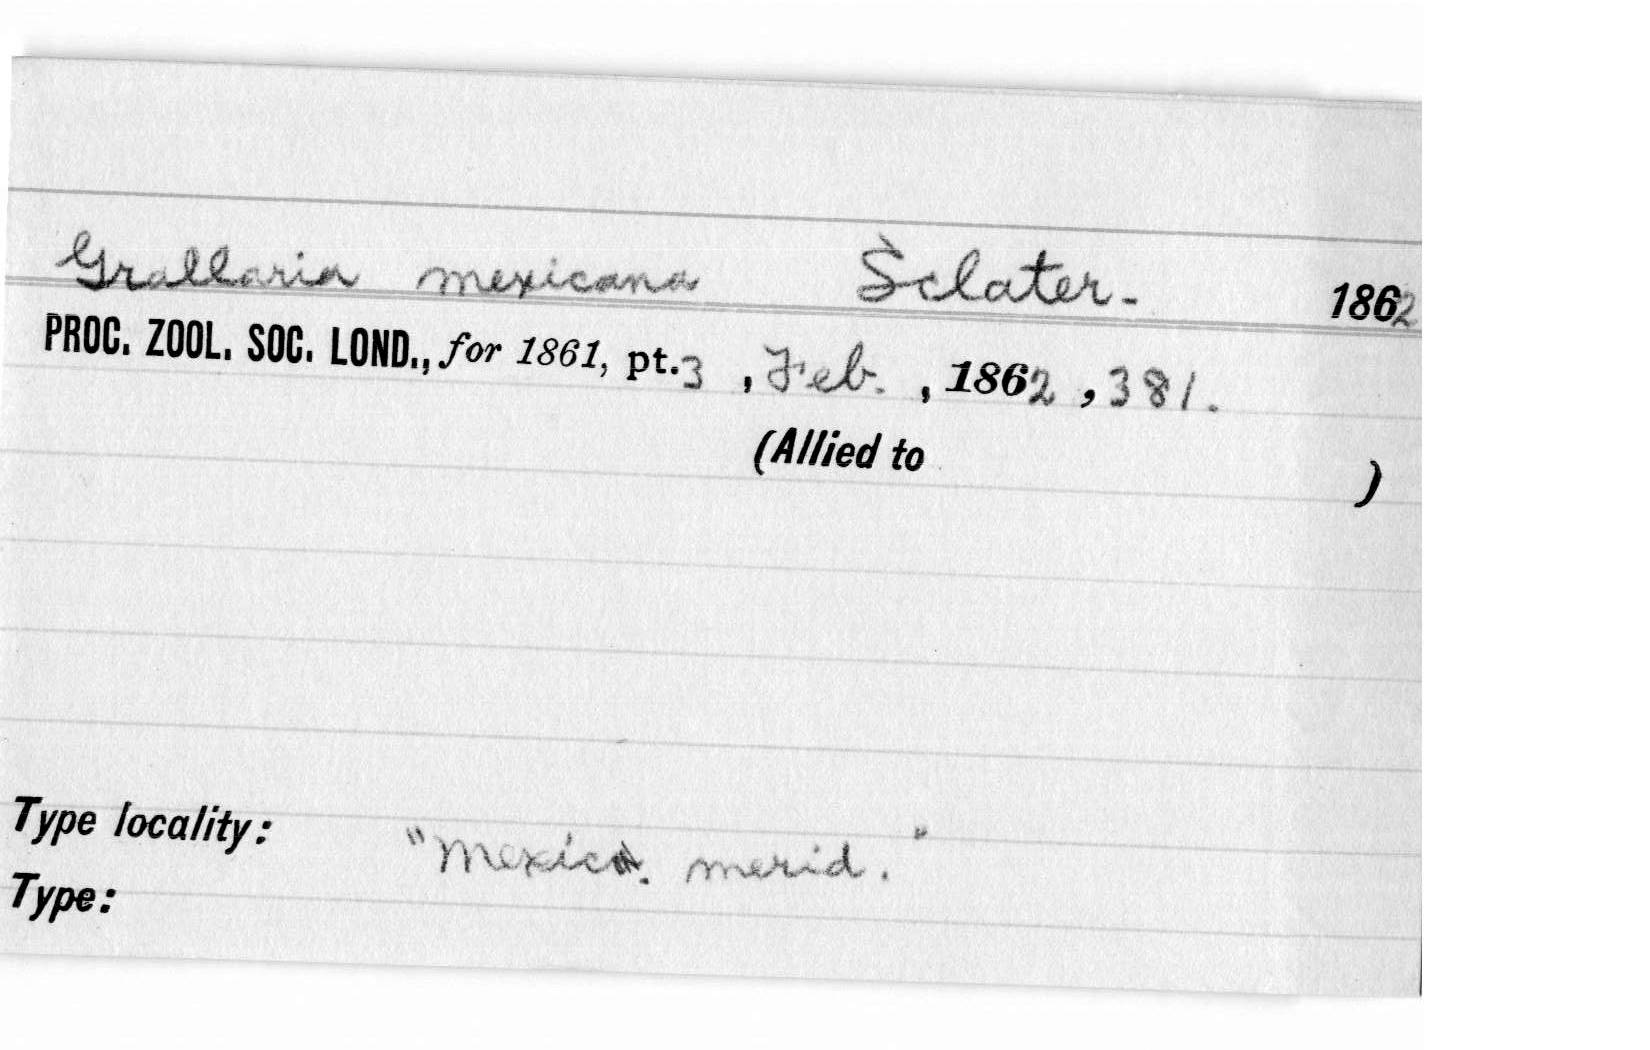 Grallaria mexicana Sclater. 1862
PROC. ZOOL. SOC. LOND., for 1861, pt. 3, Feb., 1862, 381.
(Allied to )
Type locality: "Mexico. merid."
Type: